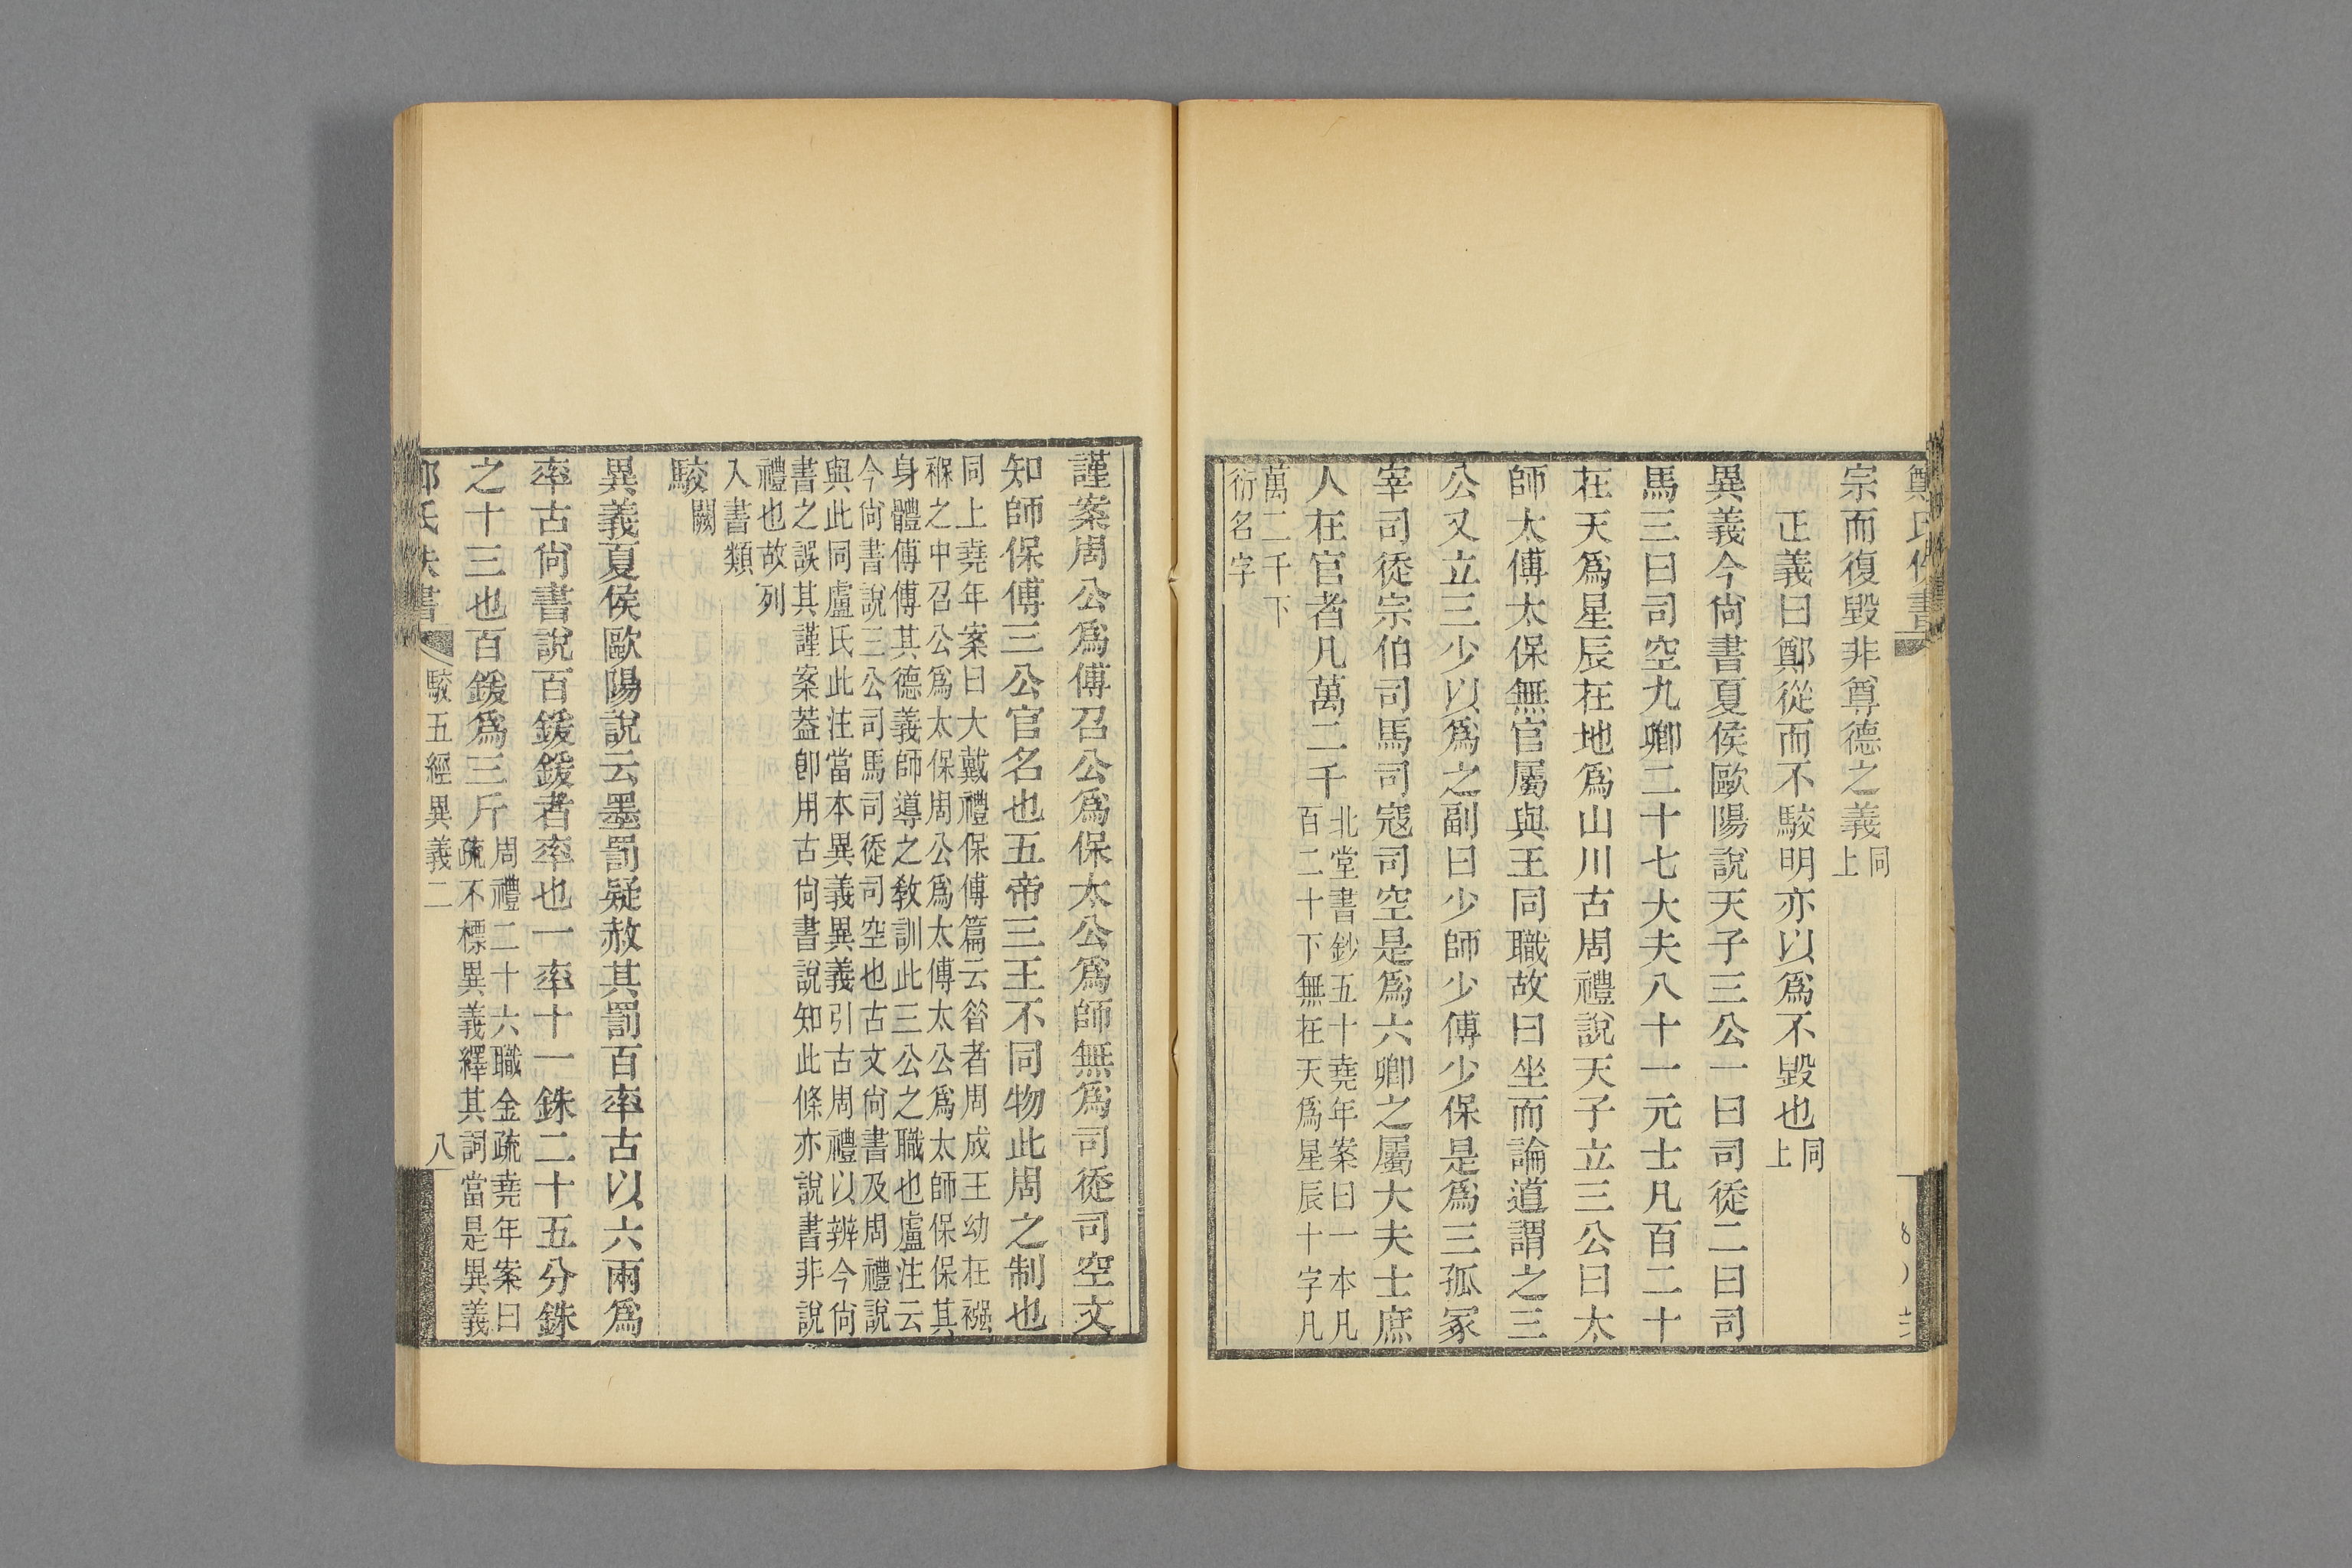 宗而復毀非尊德之義同上
正義曰鄭從而不駮明亦以爲不毀也同上
異義今尙書夏侯歐陽說天子三公一曰司徒二曰司
馬三曰司空九卿二十七大夫八十一元士凡百二十
在天爲星辰在地爲山川古周禮說天子立三公曰太
師太傅太保無官屬與王同職故曰坐而論道謂之三
公又立三少以爲之副曰少師少傅少保是爲三孤冢
宰司徒宗伯司馬司寇司空是爲六卿之屬大夫士庶
人在官者凡萬二千
北堂書鈔五十堯年案曰一本凡
百二十下無在天爲星辰十字凡
萬二千下
衍名字
謹案周公爲傅召公爲保太公爲師無爲司徒司空文
知師保傅三公官名也五帝三王不同物此周之制也
同上堯年案曰大戴禮保傅篇云昝者周成王幼在襁
褓之中召公爲太保周公爲太傅太公爲太師保保其
身體傅傅其德義師導之敎訓此三公之職也盧注云
今尙書說三公司馬司徒司空也古文尙書及周禮說
與此同盧氏此注當本異義異義引古周禮以辨今尙
書之誤其謹案葢卽用古尙書說知此條亦說書非說
禮也故列
入書類
駮闕
異義夏侯歐陽說云墨罰疑赦其罰百率古以六兩爲
率古尙書說百鍰鍰者率也一率十一銖二十五分銖
之十三也百鍰爲三斤
周禮二十六職金疏堯年案曰
疏不標異義繹其詞當是異義
駮五經異義二
八